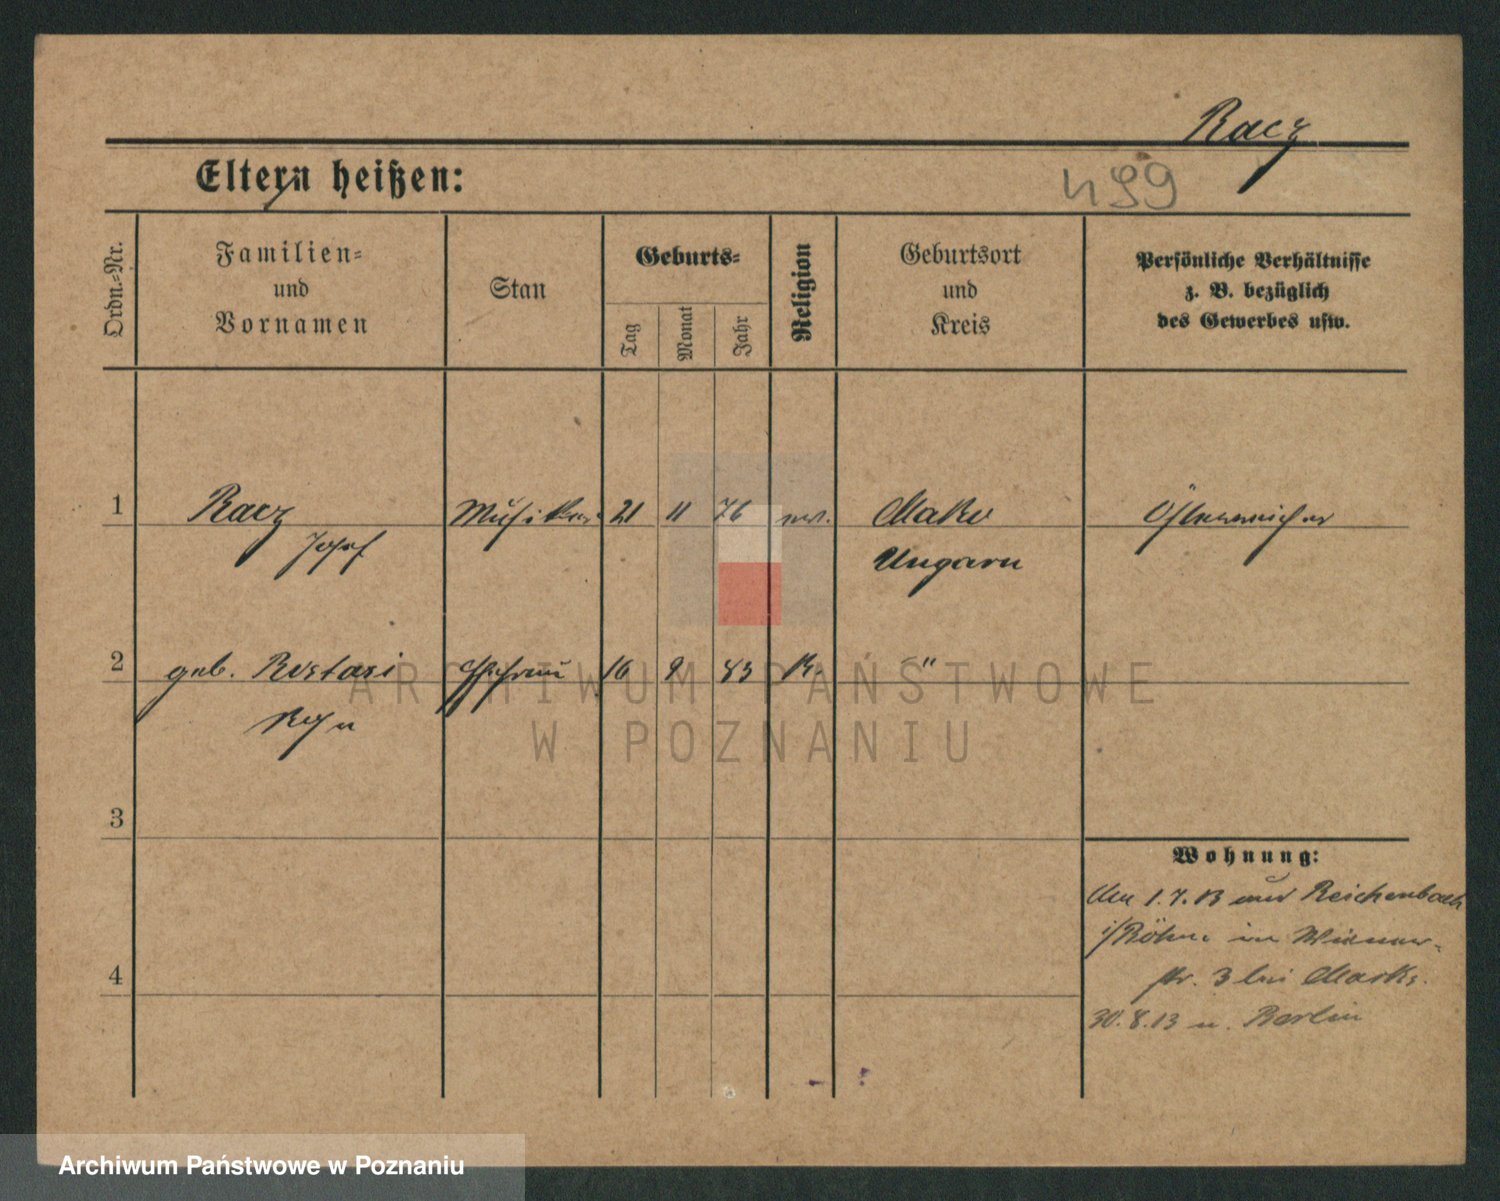 Racz
Eltern heißen:
499
Ordn.-Nr.
Familien-
und
Vornamen
Stan
Geburts-
Tag
Monat
Jahr
Religion
Geburtsort
und
Kreis
Persönliche Verhältnisse
z. B. bezüglich
des Gewerbes usw.
1 Racz Musiker 21 11 76 Mako Österreicher
Josef Ungarn
2 geb. Rostasi Ehefrau 16 9 83 K. "
3
Wohnung:
1.7.13 Reichenbach
i/Böhm. in Wiener-
4
str. 3 bei Marks.
30.8.13 n. Berlin
ARCHIWUM PAŃSTWOWE
W POZNANIU
Archiwum Państwowe w Poznaniu